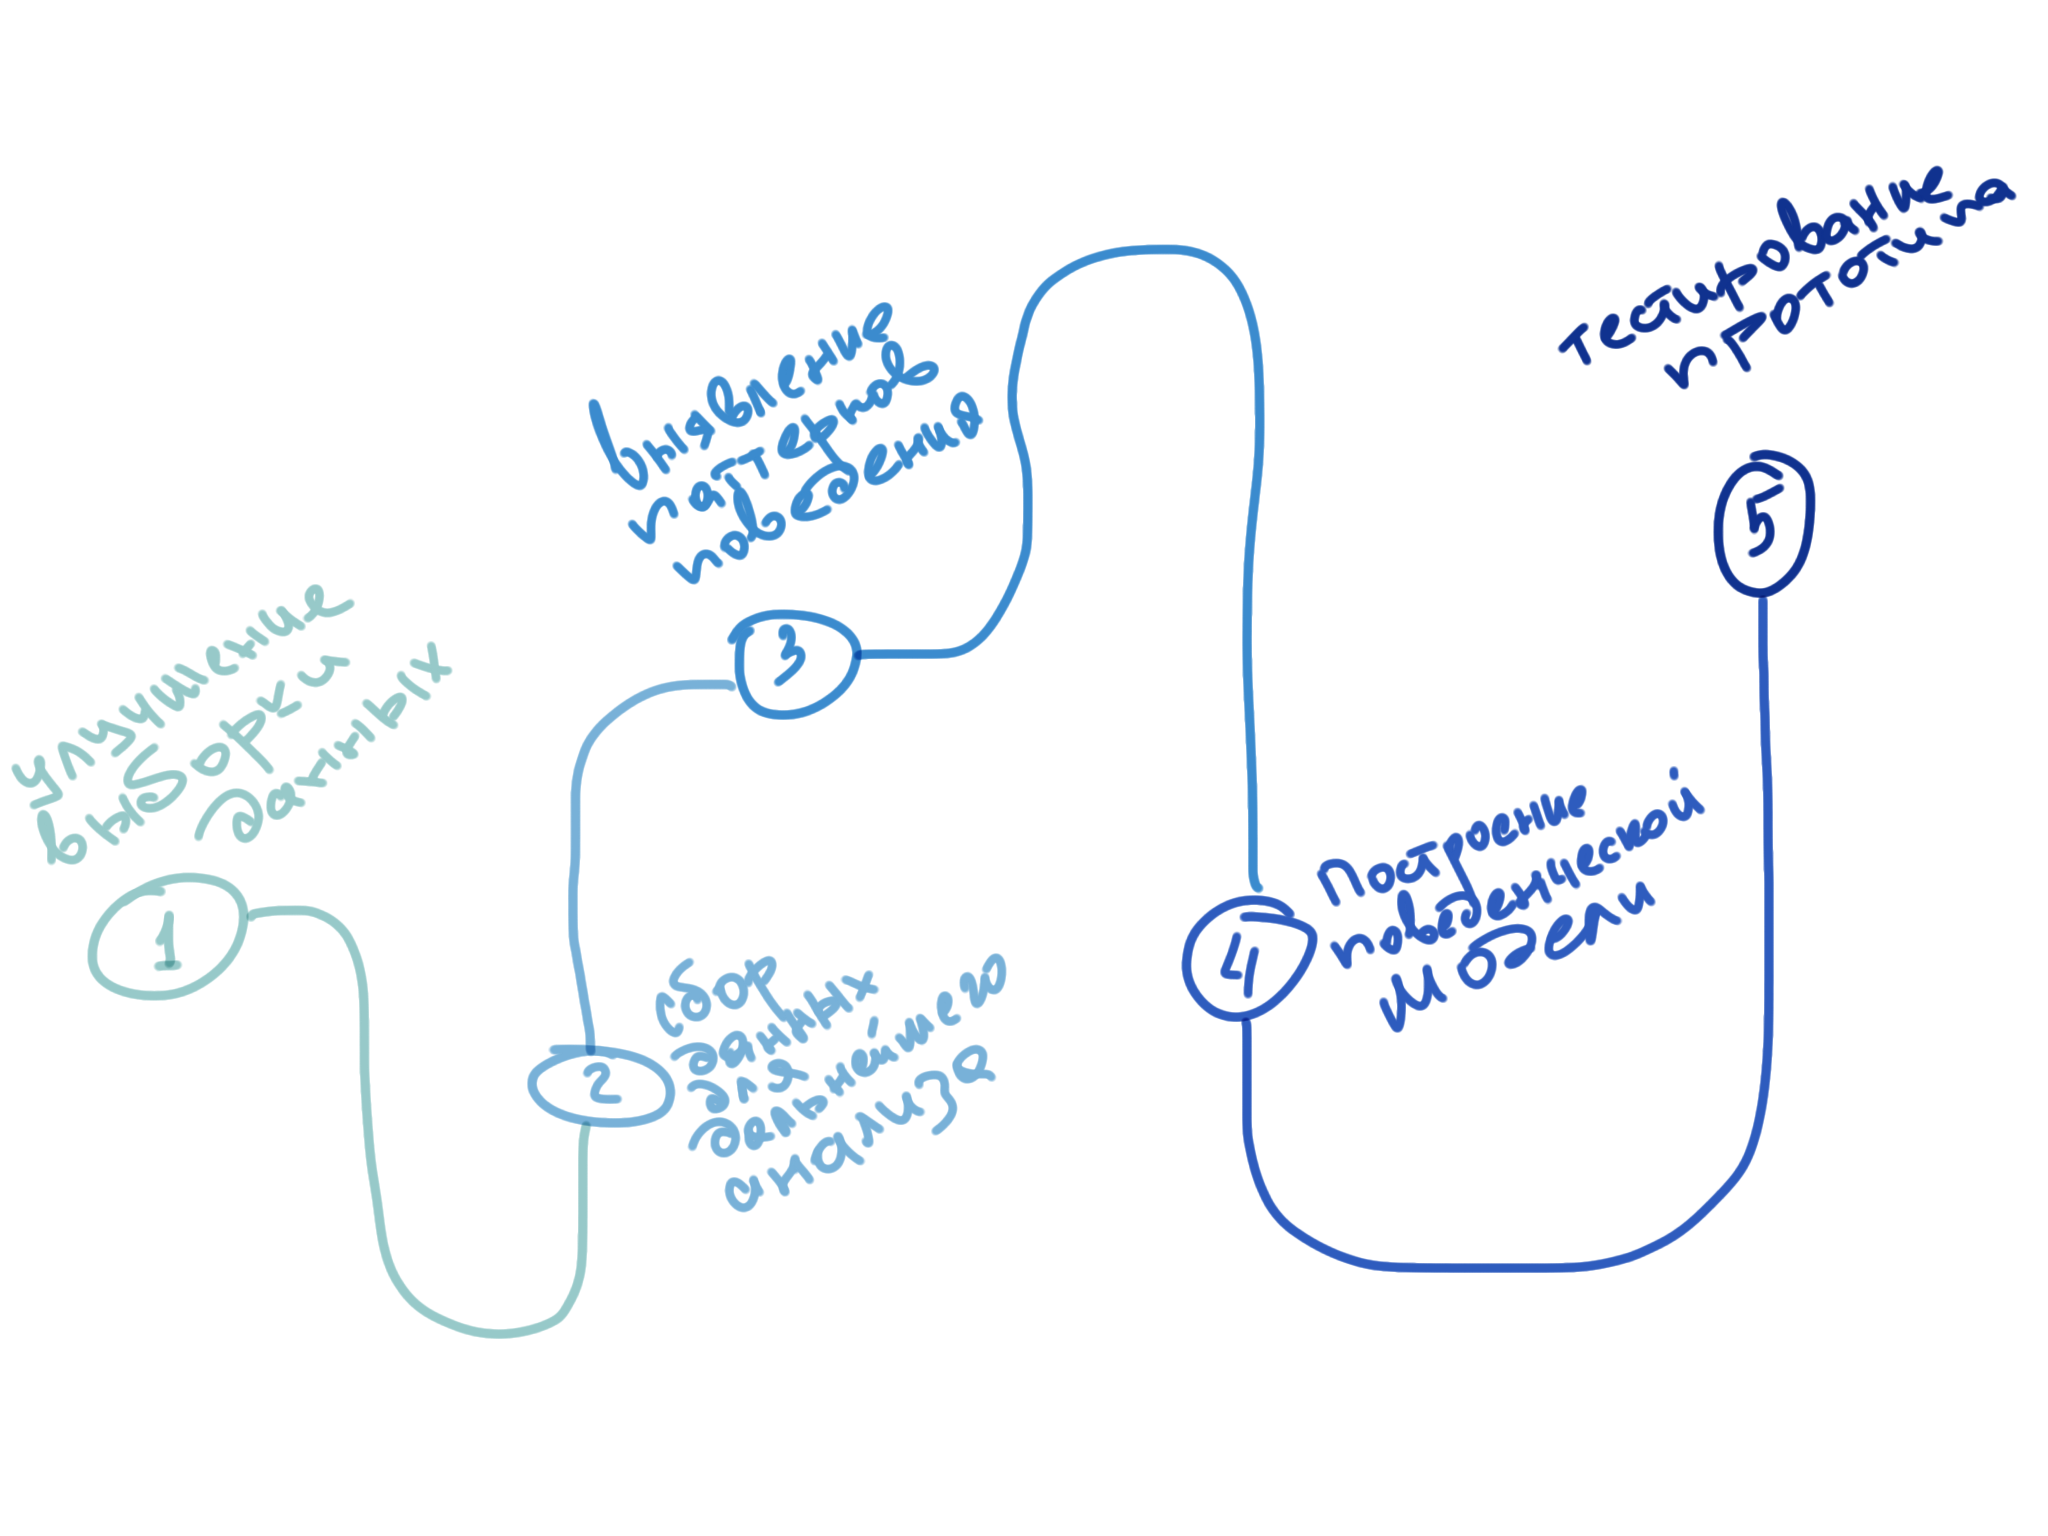 1
Улучшение
выборки
данных
2
Сбор
данных
для
дальнейшего
анализа
3
Выявление
паттернов
поведения
4
Построение
поведенческой
модели
5
тестирование
прототипа